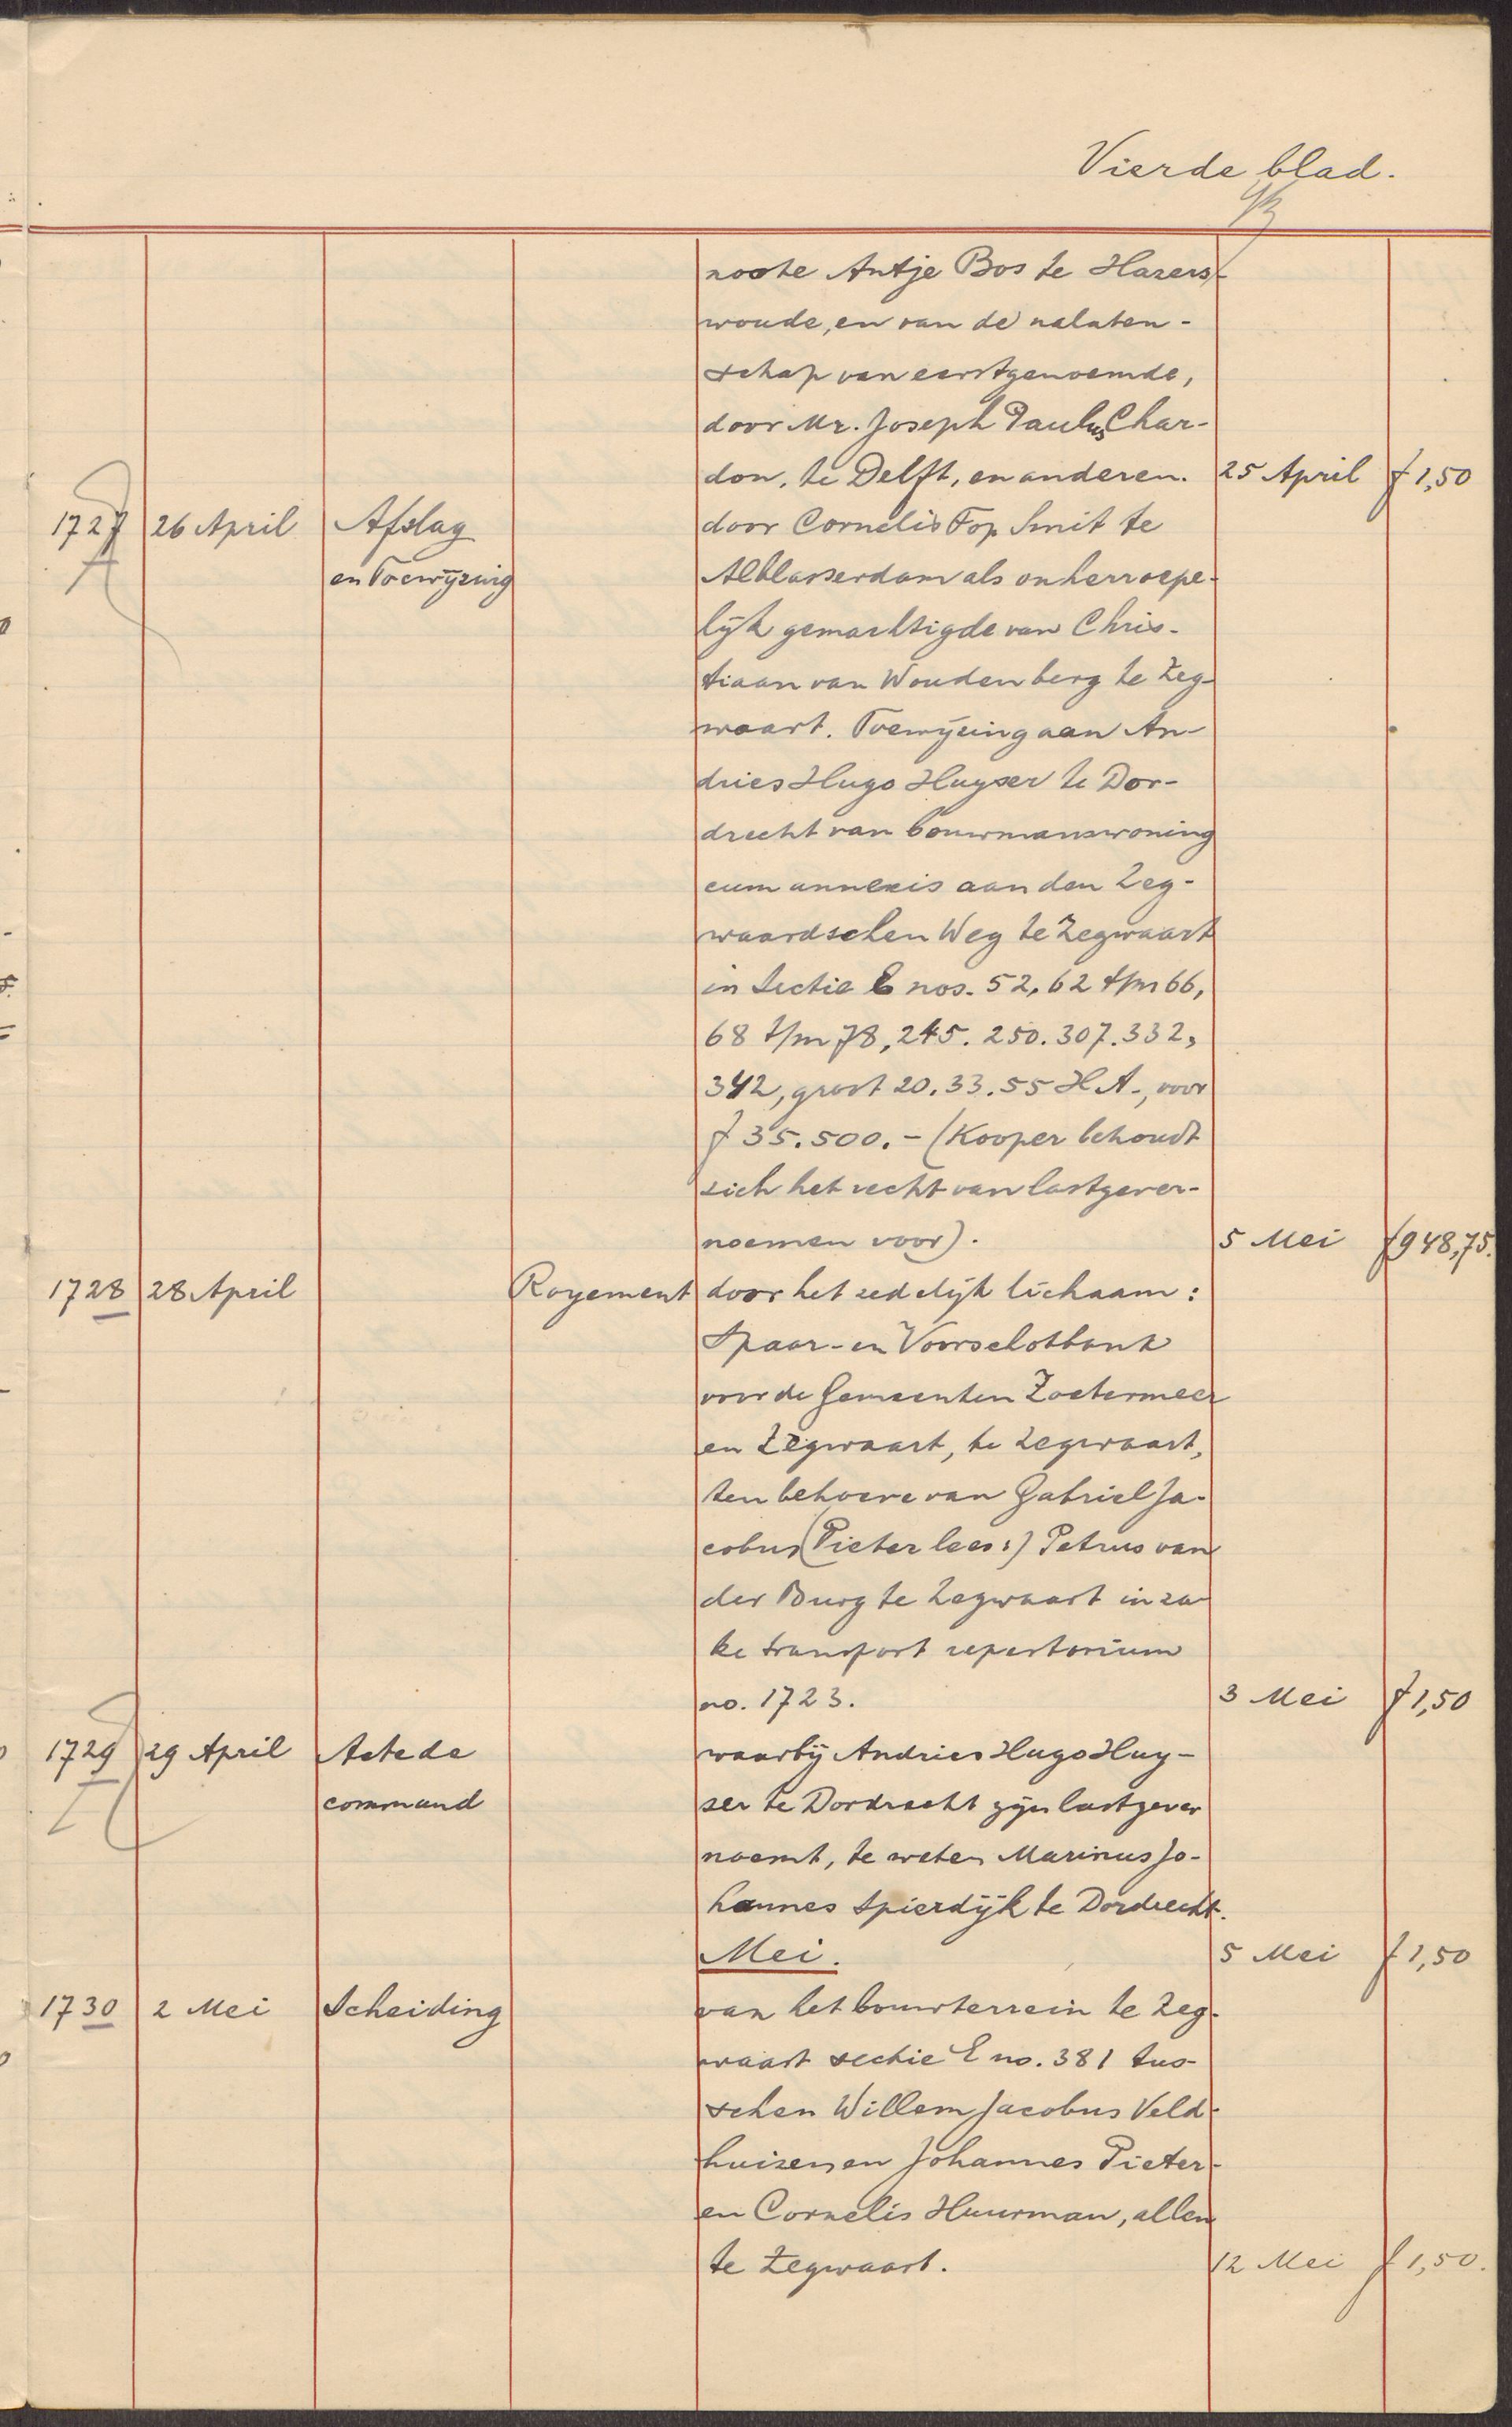 Vierde blad.
noote Antje Bos te Hazers-
woude, en van de nalaten-
schap van eerstgenoemde,
door Mr. Joseph Paulus Char-
don, te Delft, en anderen. 25 April f 1,50
1727 26 April Afslag door Cornelis Fop Smit te
en Toewijzing Alblasserdam als onherroepe-
lijk gemachtigde van Chris-
tiaan van Woudenberg te Zeg-
waart. Toewijzing aan An-
dries Hugo Huyser te Dor-
drecht van bouwmanswoning
cum annexis aan den Zeg-
waardschen Weg te Zegwaart
in Sectie E nos. 52, 62 t/m 66,
68 t/m 78, 245. 250. 307. 332,
342, groot 20.33.55 H.A., voor
f 35.500.- (Kooper behoudt
zich het recht van lastgever-
noemen voor). 5 Mei f 948,75.
1728 28 April Royement door het zedelijk lichaam:
Spaar- en Voorschotbank
voor de Gemeenten Zoetermeer
en Zegwaart, te Zegwaart,
ten behoeve van Gabriel Ja-
cobus (Pieter lees:) Petrus van
der Burg te Zegwaart in za-
ke transport repertorium
no. 1723. 3 Mei f 1,50
1729 29 April Acte de waarbij Andries Hugo Huy-
command ser te Dordrecht zijn lastgever
noemt, te weten Marinus Jo-
hannes Spierdijk te Dordrecht.
Mei. 5 Mei f 1,50
1730 2 Mei Scheiding van het bouwterrein te Zeg-
waart sectie E no. 381 tus-
schen Willem Jacobus Veld-
huizen en Johannes Pieter-
en Cornelis Huurman, allen
te Zegwaart. 12 Mei f 1,50.